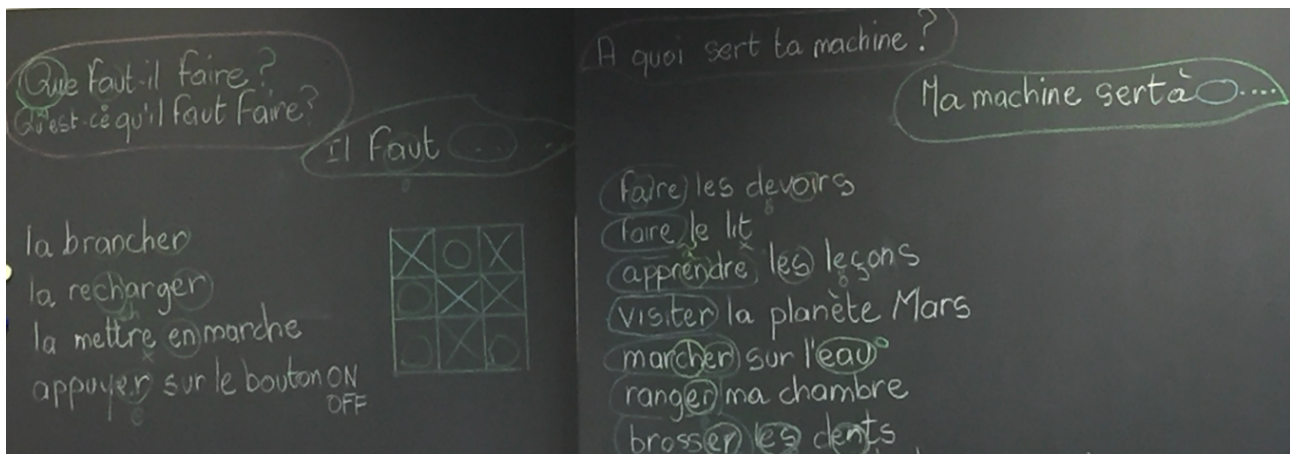 Que faut-il faire?
Qu'est-ce qu'il faut faire?
Il faut ...
la brancher
la recharger
la mettre en marche
appuyer sur le bouton ON
OFF
X O X
O X X
O X O
A quoi sert ta machine?
Ma machine sert à ....
faire les devoirs
faire le lit
apprendre les leçons
visiter la planète Mars
marcher sur l'eau
ranger ma chambre
brosser les dents